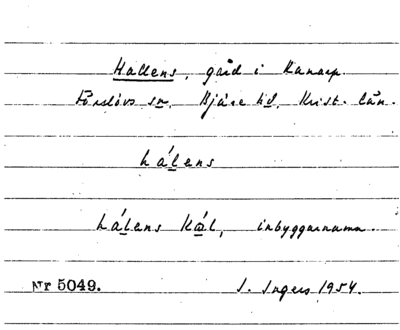 Hallens, gård i Ranarp.
Förslövs sn, Bjäre hd, Krist. län.
hálens
hálens kæl, inbyggarnamn.
Nr 5049. I. Ingers 1954.